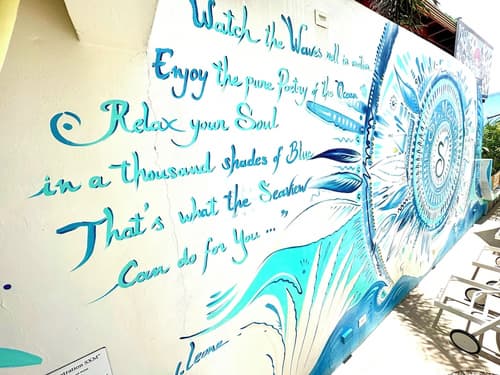 Watch the Waves roll in motion
Enjoy the pure Poetry of the Ocean
Relax your Soul
in a thousand shades of Blue
That's what the Seaview
Can do for You ..."
Leone
S
stration SXM"